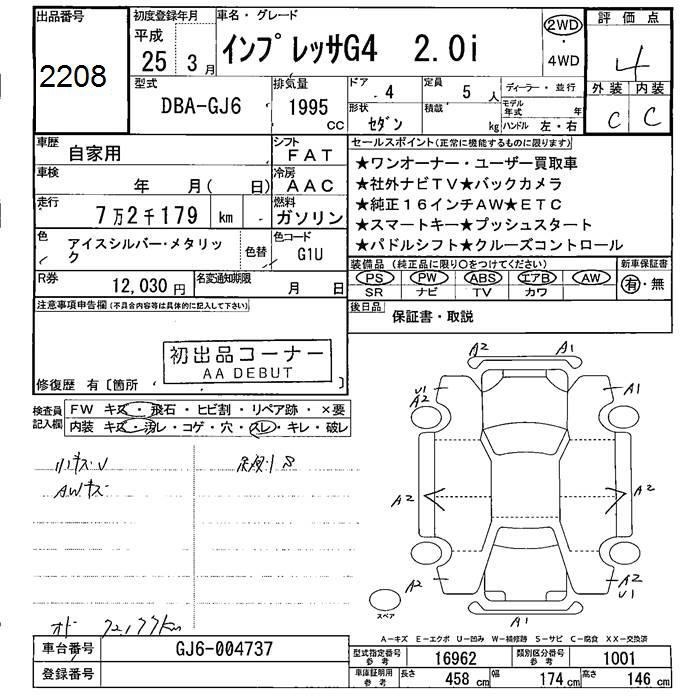 出品番号
2208
初度登録年月
平成
25 3月
車名・グレード
インプレッサG4 2.0i
2WD
・
4WD
評価点
4
外装 内装
C C
型式
DBA-GJ6
排気量
1995
CC
ドア
4
定員
5 人
ディーラー・並行
形状
セダン
積載
kg
モデル年式 年
ハンドル 左・右
車歴
自家用
シフト
FAT
車検
年 月( 日)
冷房
AAC
走行
7万2千179 km
燃料
ガソリン
色
アイスシルバー・メタリック
色替
色コード
G1U
R券
12,030円
名変通知期限
月 日
セールスポイント(正常に機能するものに限ります)
★ワンオーナー・ユーザー買取車
★社外ナビTV★バックカメラ
★純正16インチAW★ETC
★スマートキー★プッシュスタート
★パドルシフト★クルーズコントロール
装備品(純正品に限り○をつけてください)
PS PW ABS エアB AW
SR ナビ TV カワ
新車保証書
有・無
後日品
保証書・取説
注意事項申告欄(不具合内容等は具体的に記入して下さい)
初出品コーナー
AA DEBUT
修復歴 有〔箇所 〕
検査員
記入欄
FW キズ・飛石・ヒビ割・リペア跡・×要
内装 キズ・汚レ・コゲ・穴・スレ・キレ・破レ
小キズU
AWキズ
オド 72,177km
A2 A1
U1
A2
A1
A2
A2
A2
A2
U1
A1
スペア
A-キズ E-エクボ U-凹み W-補修跡 S-サビ C-腐食 XX-交換済
車台番号
GJ6-004737
登録番号
型式指定番号
参考
16962
類別区分番号
参考
1001
車庫証明用
参考
長さ 458cm 幅 174cm 高さ 146cm